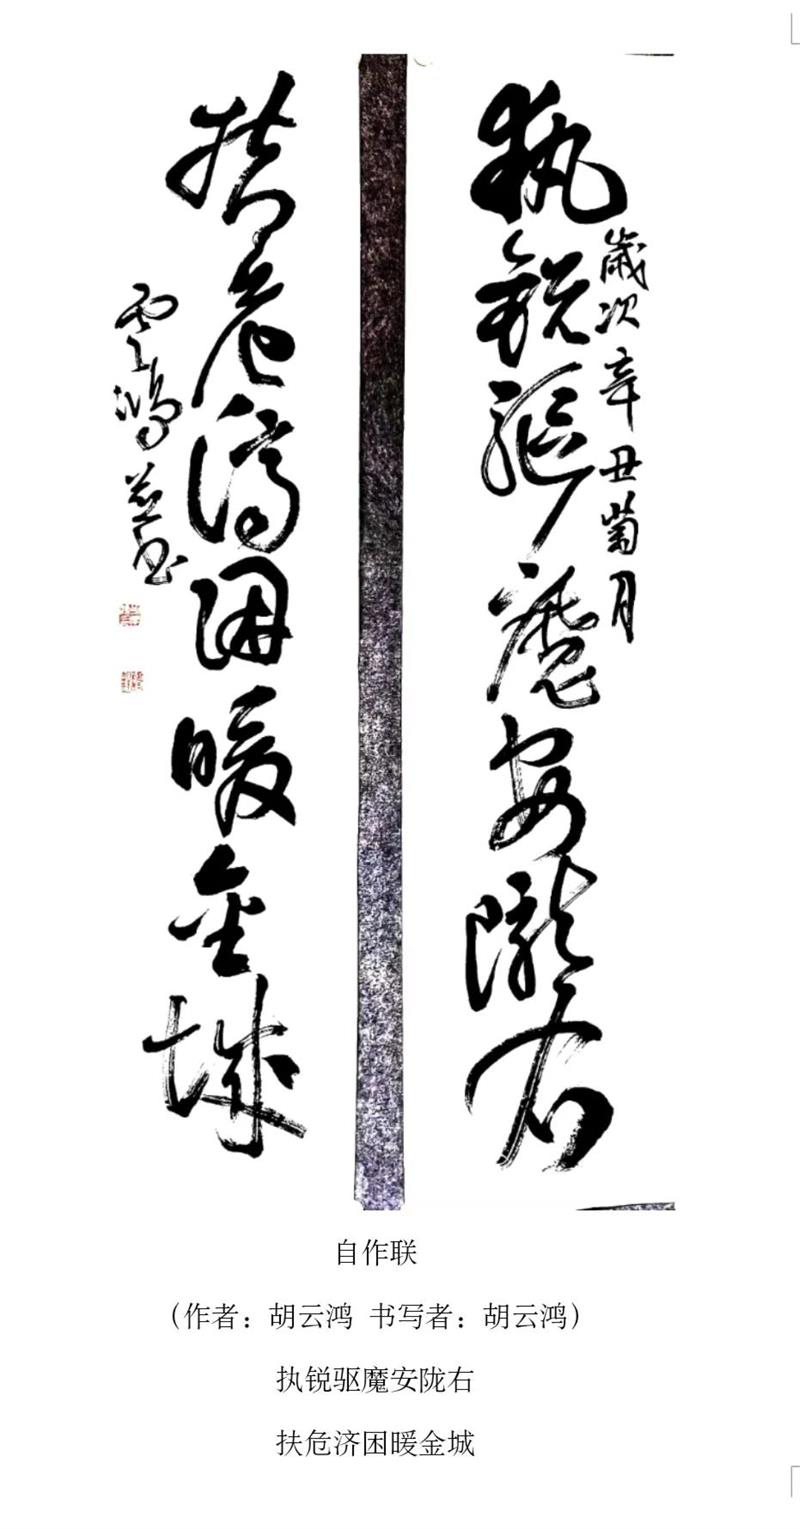 執銳驅魔安隴右
歲次辛丑菊月
扶危濟困暖金城
雲鴻並書
自作联
（作者：胡云鸿 书写者：胡云鸿）
执锐驱魔安陇右
扶危济困暖金城